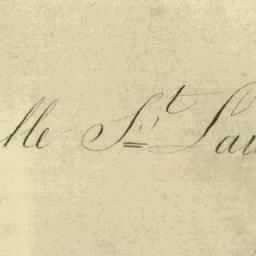 lle St Lau